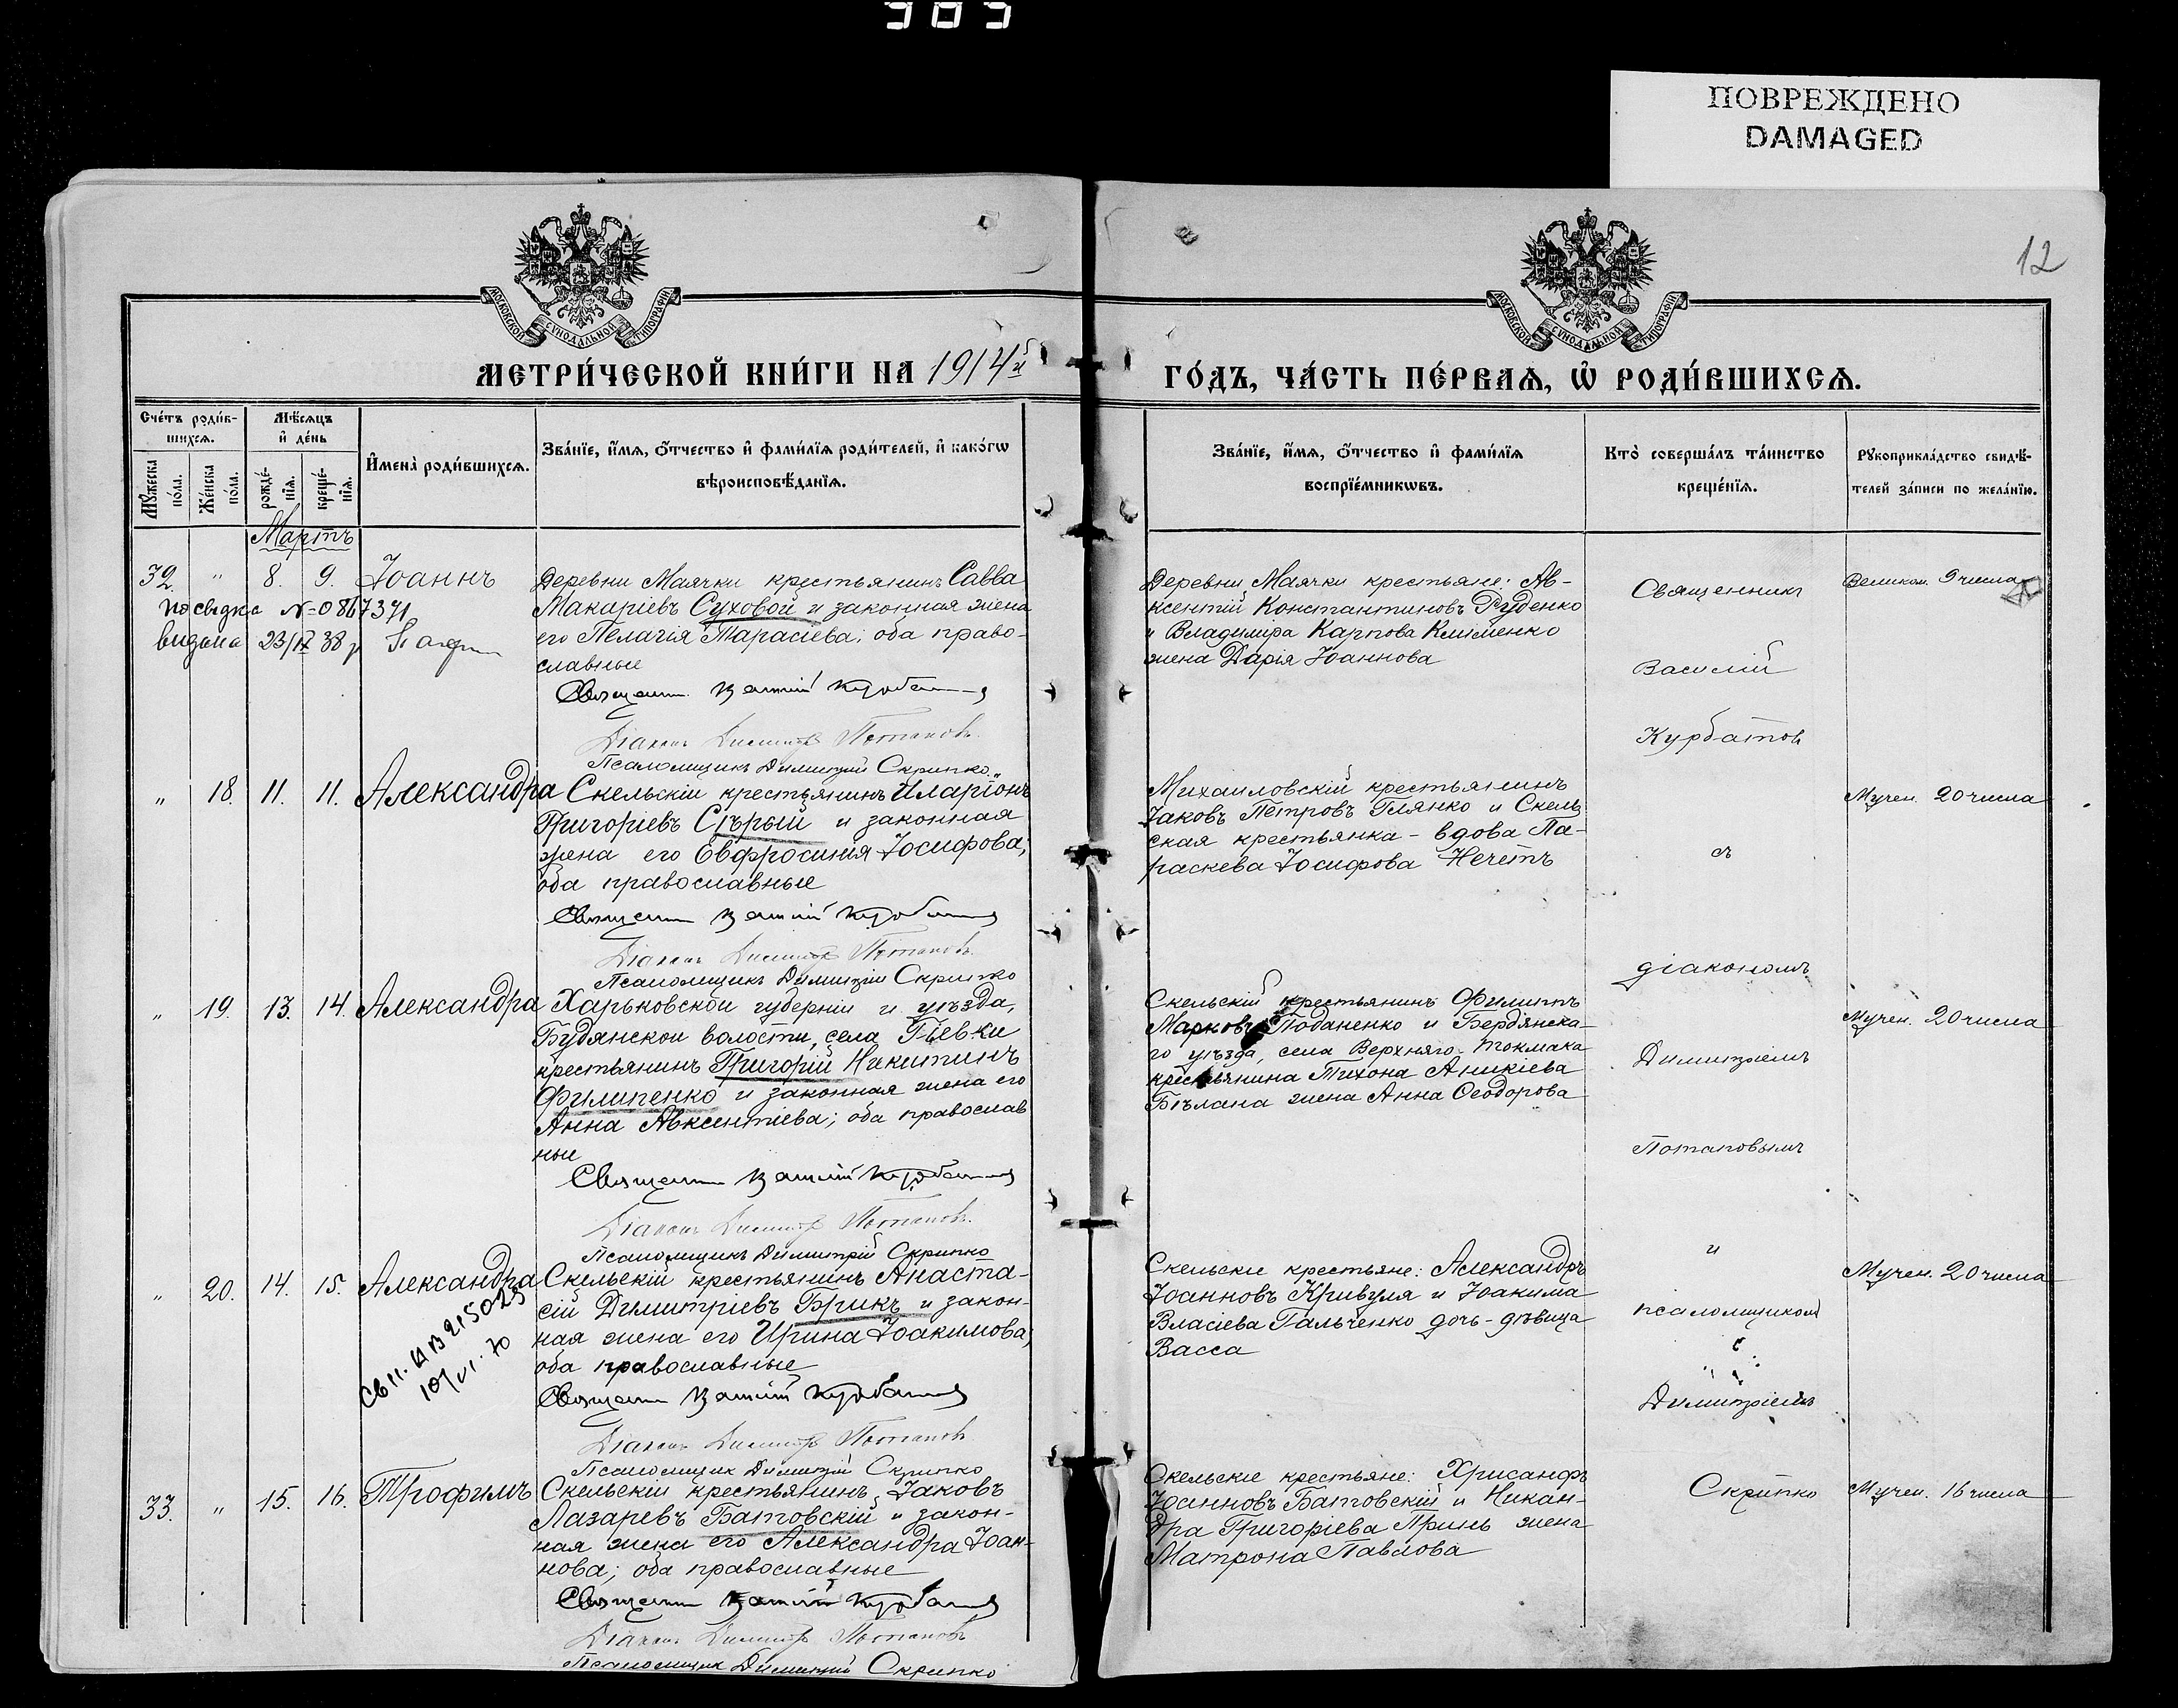 ПОВРЕЖДЕНО
DAMAGED
12
МОСКОВСКОЙ СѴНОДАЛЬНОЙ ТИПОГРАФІИ
МОСКОВСКОЙ СѴНОДАЛЬНОЙ ТИПОГРАФІИ
МЕТРИ́ЧЕСКОЙ КНИ́ГИ НА 1914й
ГО́ДЪ, ЧА́СТЬ ПЕ́РВАѦ, Ѡ҆ РОДИ́ВШИХСѦ.
Сче́тъ роди́в-
шихсѧ.
Мꙋ́жеска по́ла.
Же́нска по́ла.
Мѣ́сѧцъ
и҆ де́нь
рожде́-
нїѧ.
креще́-
нїѧ.
И҆мена̀ роди́вшихсѧ.
Зва́нїе, и҆́мѧ, ѻ҆́тчество и҆ фами́лїѧ роди́телей, и҆ како́гѡ
вѣроисповѣ́данїѧ.
Зва́нїе, и҆́мѧ, ѻ҆́тчество и҆ фами́лїѧ
воспрїе́мникѡвъ.
Кто̀ соверша́лъ та́инство
креще́нїѧ.
Рꙋкоприкла́дство свидѣ́-
телей за́писи по жела́нїю.
Мартъ
32. " 8. 9. Іоаннъ
Деревни Маячки крестьянинъ Савва
Макаріевъ Суховой и законная жена
его Пелагія Тарасіева; оба право-
славные
посвідка №0867371
видана 23/IX 38 р
Діаконъ Димитрій Потаповъ.
Псаломщикъ Димитрій Скрипко.
Деревни Маячки крестьяне: Ав-
ксентій Константиновъ Руденко
и Владиміра Карпова Клименко
жена Дарія Іоаннова
Священникъ
Василій
Курбатовъ
Великом. 9 числа
" 18. 11. 11. Александра
Скельскій крестьянинъ Иларіонъ
Григоріевъ Сѣрый и законная
жена его Евфросинія Іосифова;
оба православные
Діаконъ Димитрій Потаповъ.
Псаломщикъ Димитрій Скрипко
Михайловскій крестьянинъ
Іаковъ Петровъ Глянко и Скель
ская крестьянка - вдова Па-
раскева Іосифова Нечетъ
съ
діакономъ
Мучен. 20 числа
" 19. 13. 14. Александра
Харьковской губерніи и уѣзда,
Будянской волости, села Гіевки
крестьянинъ Григорій Никитинъ
Филипенко и законная жена его
Анна Авксентіева; оба православ
ные
Діаконъ Димитрій Потаповъ.
Псаломщикъ Димитрій Скрипко
Скельскій крестьянинъ Филиппъ
Марковъ Поданенко и Бердянска-
го уѣзда, села Верхняго-Токмака
крестьянина Тихона Аникіева
Бѣлана жена Анна Ѳеодорова
Димитріемъ
Потаповымъ
Мучен. 20 числа
" 20. 14. 15. Александра
Скельскій крестьянинъ Анаста-
сій Димитріевъ Брикъ и закон-
ная жена его Ирина Іоакимова;
оба православные
10/VI.70
Діаконъ Димитрій Потаповъ
Псаломщикъ Димитрій Скрипко
Скельскіе крестьяне: Александръ
Іоанновъ Кривуля и Іоакима
Власіева Гальченко дочь - дѣвица
Васса
и
псаломщикомъ
Димитріемъ
Мучен. 20 числа
33. " 15. 16. Трофимъ
Скельскій крестьянинъ Іаковъ
Лазаревъ Батовскій и закон-
ная жена его Александра Іоан-
нова; оба православные
Діаконъ Димитрій Потаповъ
Псаломщикъ Димитрій Скрипко
Скельскіе крестьяне: Хрисанфъ
Іоанновъ Батовскій и Никан-
дра Григоріева Принь жена
Матрона Павлова
Скрипко
Мучен. 16 числа